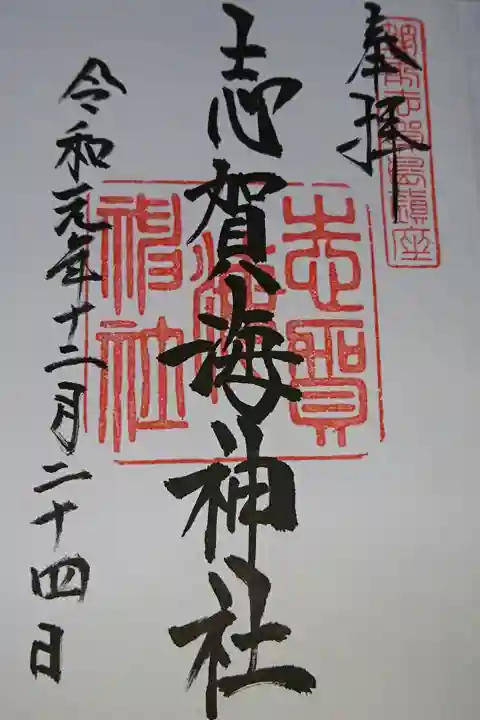 奉拝
筑前志賀島鎮座
志賀海神社
志賀海神社
令和元年十二月二十四日